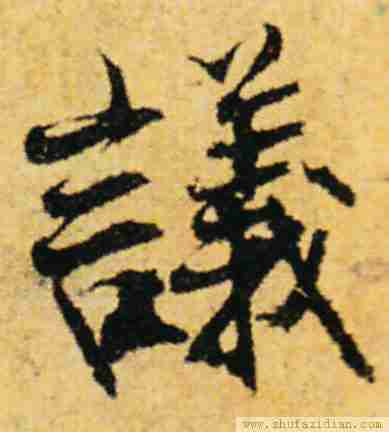 議
www.shufazidian.com